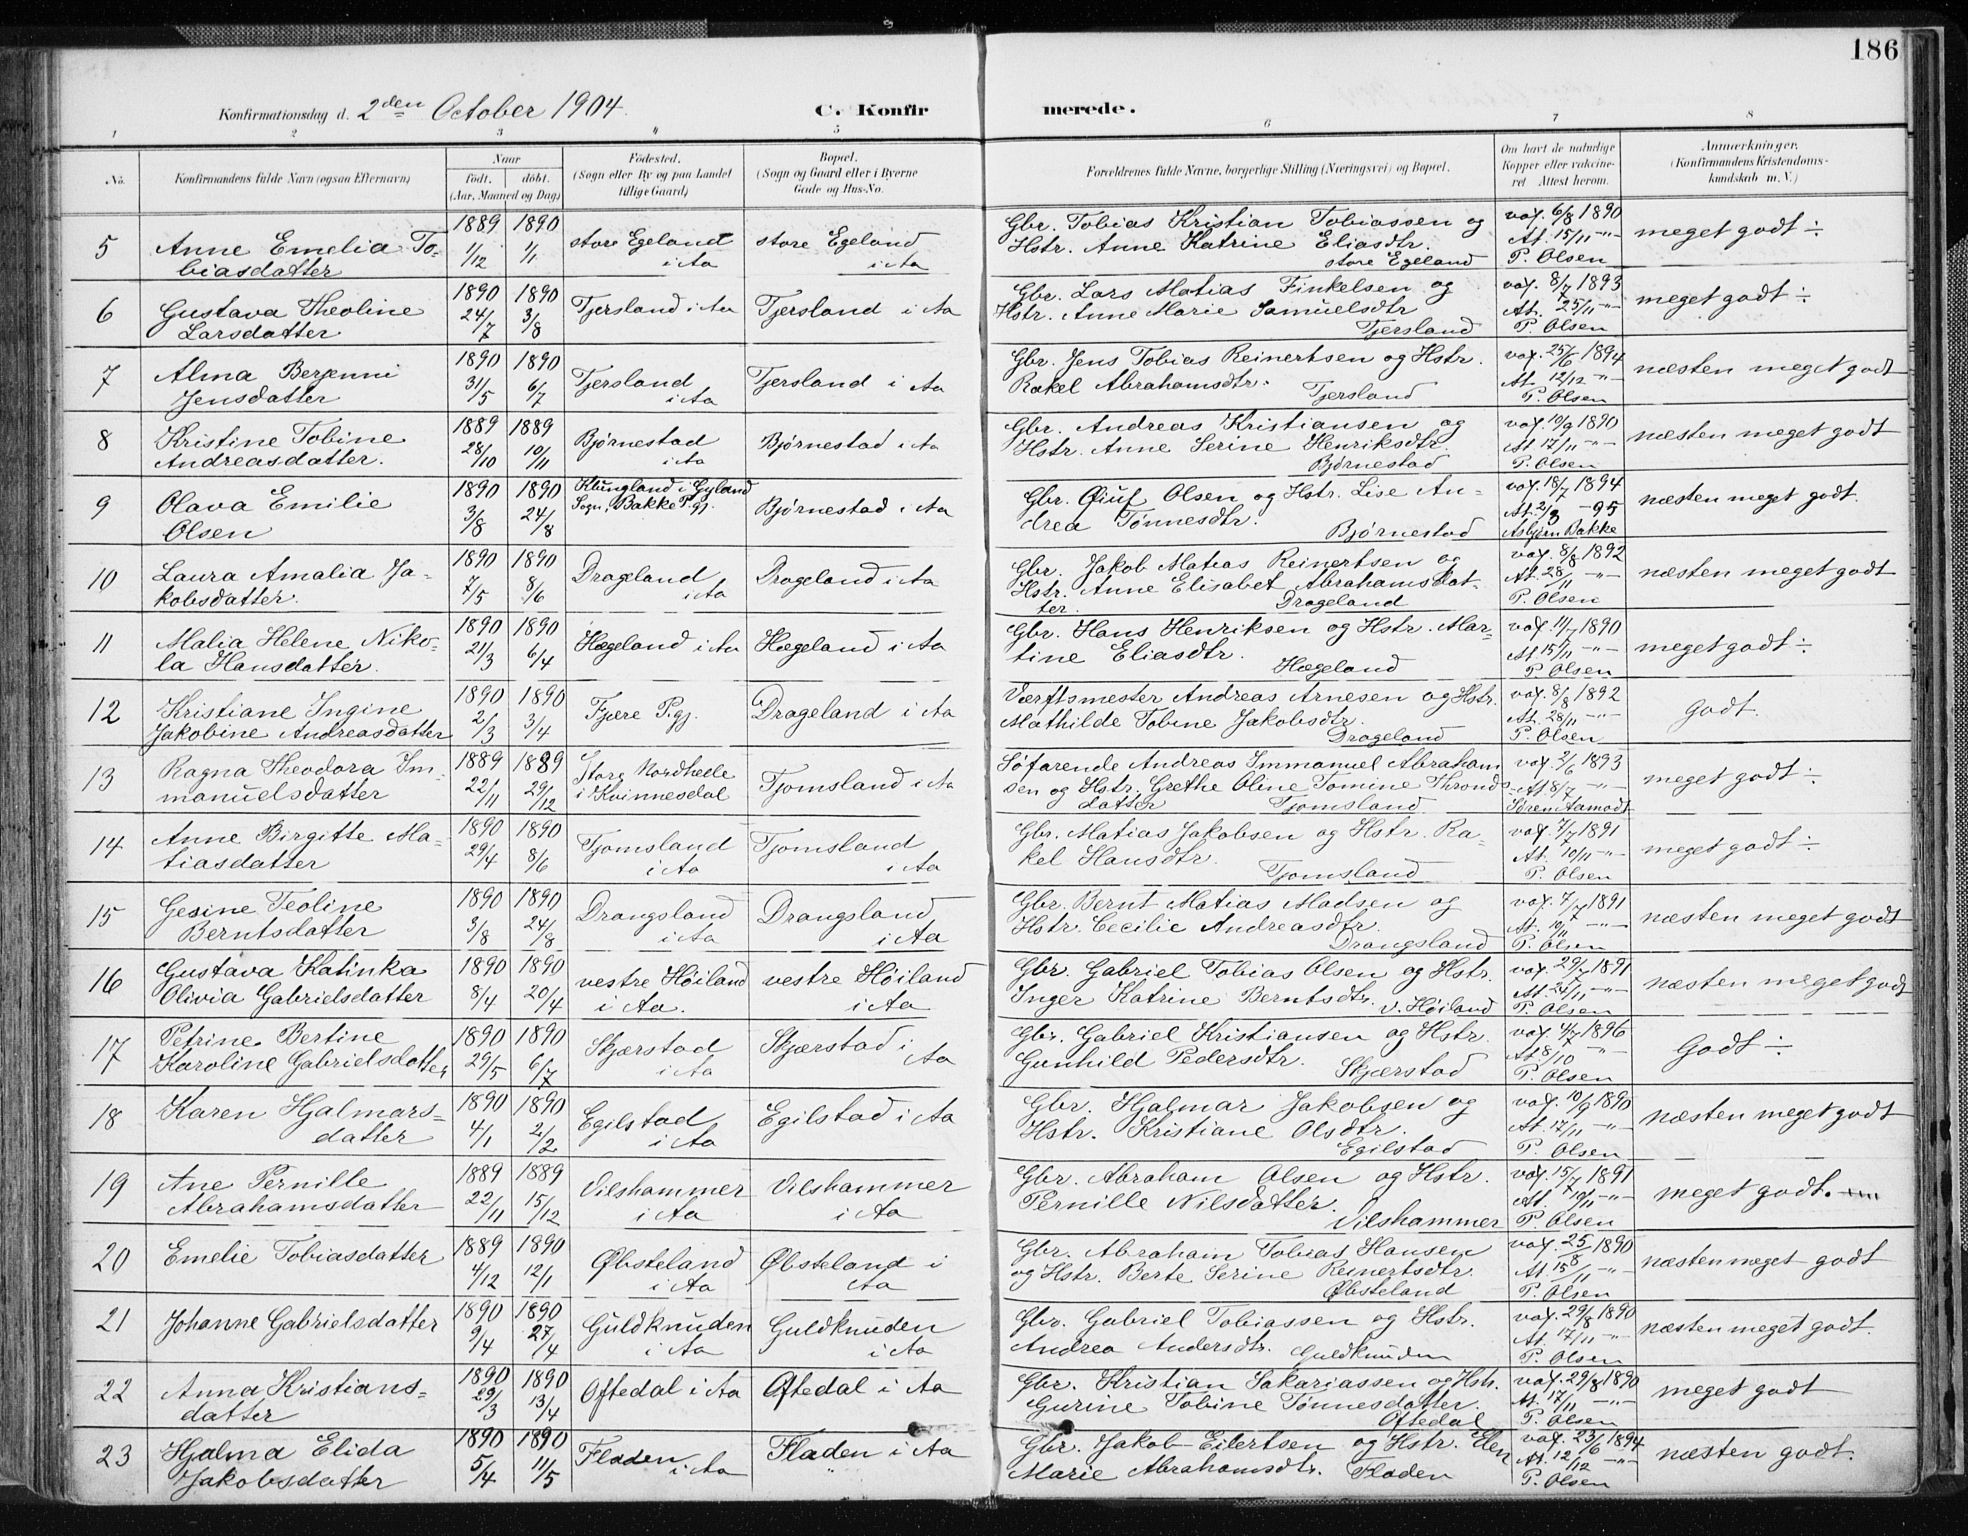 186
Konfirmationsdag d. 2den October 1904. C. Konfirmerede.
1 2 3 4 5 6 7 8
No. Konfirmandens fulde Navn (ogsaa Efternavn) Naar født. døbt. (Aar, Maaned og Dag) Fødested. (Sogn eller By og paa Landet tillige Gaard) Bopæl. (Sogn og Gaard eller i Byerne Gade og Hus-No. Forældrenes fulde Navne, borgerlige Stilling (Næringsvei) og Bopæl. Om havt de naturlige Kopper eller vakcineret Attest herom. Anmærkninger. (Konfirmandens Kristendomskundskab m. V.)
1889 1890 Gbr. Tobias Kristian Tobiassen og vax. 6/8 1890
5 Anne Emelia To- store Egeland store Egeland Hstr. Anne Katrine Eliasdtr. At. 15/11 -"- meget godt ÷
biasdatter 1/12 1/1 i Aa i Aa store Egeland P. Olsen
1890 1890 Gbr. Lars Matias Finkelsen og vax. 8/7 1893
6 Gustava Theoline 24/7 3/8 Tjersland i Aa Tjersland i Aa Hstr. Anne Marie Samuelsdtr At. 25/11 -"- meget godt ÷
Larsdatter Tjersland P. Olsen
1890 1890 Gbr. Jens Tobias Reinertsen og Hstr. vax. 25/6 1894
7 Alma Berjenni 31/5 6/7 Tjersland Tjersland i Aa Rakel Abrahamsdtr. At. 12/12 -"- næsten meget godt
Jensdatter i Aa Tjersland P. Olsen
1889 1889 Gbr. Andreas Kristiansen og vax. 10/9 1890
8 Kristine Tobine 28/10 10/11 Bjørnestad Bjørnestad i Aa Hstr. Anne Serine Henriksdtr. At. 17/11 -"- næsten meget godt
Andreasdatter. i Aa Bjørnestad P. Olsen
1890 1890 Klungland i Gyland vax. 18/7 1894
9 Olava Emilie 3/8 24/8 Sogn, Bakke P.gj. Bjørnestad i Aa Gbr. Øiuf Olsen og Hstr. Lise An- At. 2/3 -95 næsten meget godt.
Olsen drea Tønnesdtr. Bjørnestad Asbjørn Bakke
1890 1890 Gbr. Jakob Matias Reinertsen og vax. 8/8 1892
10 Laura Amalia Ja- 7/5 8/6 Drageland Drageland i Aa Hstr. Anne Elisabet Abrahamsdat- At. 28/11 -"- næsten meget godt
kobsdatter. i Aa ter. Drageland P. Olsen
1890 1890 Gbr. Hans Henriksen og Hstr. Mar- vax. 11/7 1890
11 Malia Helene Niko- 21/3 6/4 Hægeland i Aa Hægeland i Aa tine Eliasdtr. At. 15/11 -"- meget godt ÷
la Hansdatter. Hægeland P. Olsen
1890 1890 Værftsmester Andreas Arnesen og Hstr. vax. 8/8 1892
12 Kristiane Ingine 2/3 3/4 Fjære P.gj. Drageland i Aa Mathilde Tobine Jakobsdtr. At. 28/11 -"- Godt.
Jakobine Andreasdatter Drageland P. Olsen
1889 1889 Søfarende Andreas Immanuel Abraham vax. 2/6 1893
13 Ragna Theodora Im- 22/11 29/12 Store Nordhede Tjomsland i Aa sen og Hstr. Grethe Oline Tomine Thronds At 8/7 -"- meget godt ÷
manuelsdatter i Kvinnesdal datter Tjomsland Søren Aamodt
1890 1890 Gbr. Matias Jakobsen og Hstr. Ra- vax. 7/7 1891
14 Anne Birgitte Ma- 29/4 8/6 Tjomsland Tjomsland kel Hansdtr. At. 10/11 -"- meget godt ÷
tiasdatter i Aa i Aa Tjomsland P. Olsen
1890 1890 Gbr. Bernt Matias Madsen og vax. 7/7 1891
15 Gesine Teoline 3/8 24/8 Drangsland Drangsland Hstr. Cecilie Andreasdtr. At. 10/11 -"- næsten meget godt
Berntsdatter i Aa i Aa Drangsland P. Olsen
1890 1890 Gbr. Gabriel Tobias Olsen og Hstr. vax. 29/7 1891
16 Gustava Katinka 8/4 20/4 vestre Høiland vestre Høiland Inger Katrine Berntsdtr. At. 24/11 -"- næsten meget godt
Olivia Gabrielsdatter i Aa. i Aa v. Høiland P. Olsen
1890 1890 Gbr. Gabriel Kristiansen og Hstr. vax. 4/7 1896
17 Petrine Bertine 29/5 6/7 Skjærstad Skjærstad i Gunhild Pedersdtr. At. 8/10 -"- Godt ÷
Karoline Gabrielsdatter i Aa Aa Skjærstad P. Olsen
1890 1890 Gbr. Hjalmar Jakobsen og vax. 10/9 1890
18 Karen Hjalmars- 4/1 2/2 Egilstad Egilstad i Aa Hstr. Kristiane Olsdtr. At. 17/11 -"- næsten meget godt
datter i Aa Egilstad P. Olsen
1889 1889 Gbr. Abraham Olsen og Hstr. vax. 15/7 1891
19 Ane Pernille 22/11 15/12 Vilshammer Vilshammer Pernille Nilsdatter. At 10/11 -"- meget godt.
Abrahamsdatter i Aa i Aa Vilshammer P. Olsen
1889 1890 Gbr. Abraham Tobias Hansen vax. 25/8 1890
20 Emelie Tobiasdatter 4/12 12/1 Øbsteland Øbsteland i og Hstr. Berte Serine Reinertsdtr. At 15/11 -"- næsten meget godt
i Aa Aa Øbsteland P. Olsen
1890 1890 Gbr. Gabriel Tobiassen og Hstr. vax. 29/8 1890
21 Johanne Gabrielsdatter 9/4 27/4 Guldknuden Guldknuden Andrea Andersdtr. Guldknuden At. 17/11 -"- næsten meget godt.
i Aa i Aa P. Olsen
1890 1890 Gbr. Kristian Sakariassen og Hstr. vax. 29/8 1890
22 Anna Kristians- 29/3 13/4 Oftedal i Aa Oftedal i Aa Gurine Tobine Tønnesdatter. At. 17/11 -"- meget godt
datter Oftedal P. Olsen
1890 1890 Gbr. Jakob Eilertsen og Hstr. Elen vax. 23/6 1894
23 Hjalma Elida 5/4 11/5 Fladen Fladen i Aa Marie Abrahamsdtr. Fladen At. 12/12 -"- næsten godt.
Jakobsdatter i Aa P. Olsen